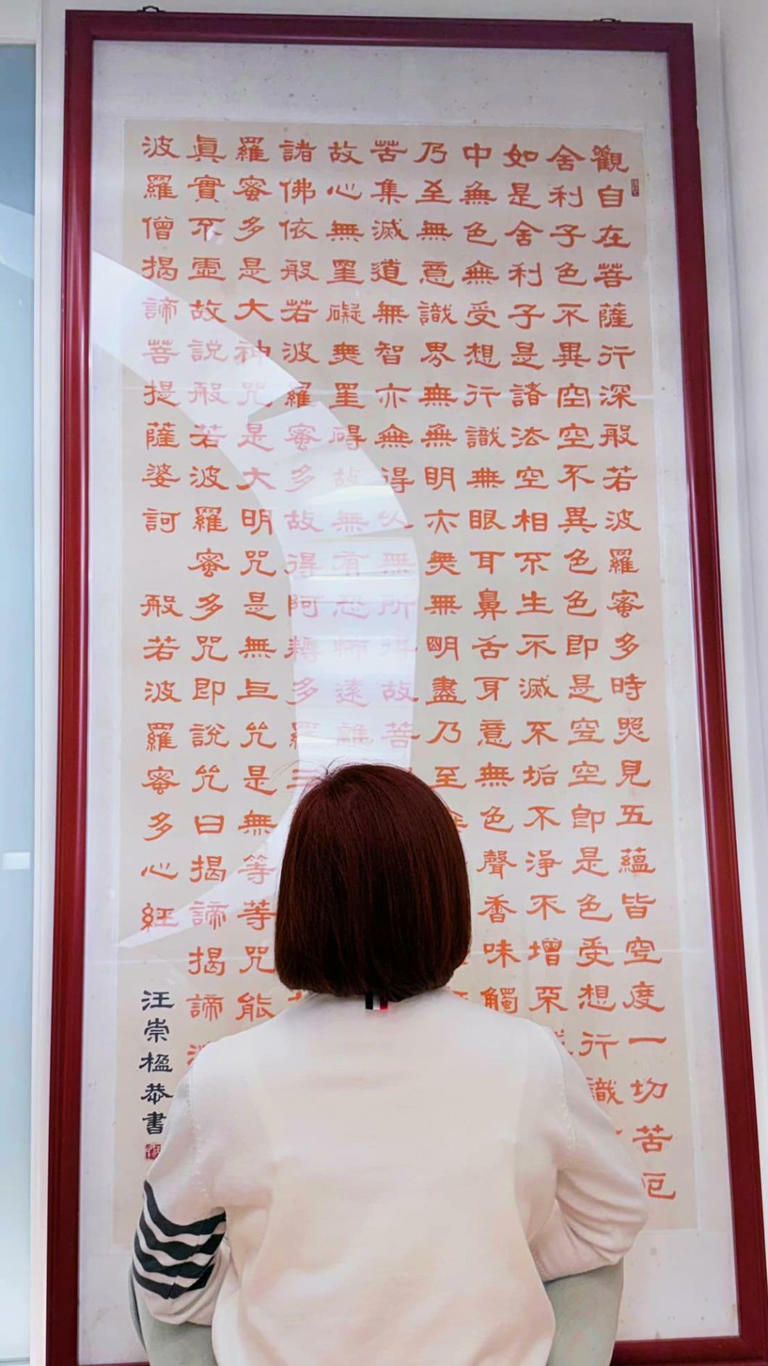 觀自在菩薩行深般若波羅蜜多時照見五蘊皆空度一切苦厄
舍利子色不異空空不異色色即是空空即是色受想行識
如是舍利子是諸法空相不生不滅不垢不淨不增不
中無色無受想行識無眼耳鼻舌身意無色聲香味觸
乃至無意識界無無明亦無無明盡乃至
苦集滅道無智亦無得以無所得故菩
故心無罣礙無罣碍故無有恐怖遠離
諸佛依般若波羅蜜多故得阿耨多羅三
羅蜜多是大神咒是大明咒是無上咒是無等等咒能
真實不虛故說般若波羅蜜多咒即說咒曰揭諦揭諦
波羅僧揭諦菩提薩婆訶 般若波羅蜜多心經
汪崇楹恭書